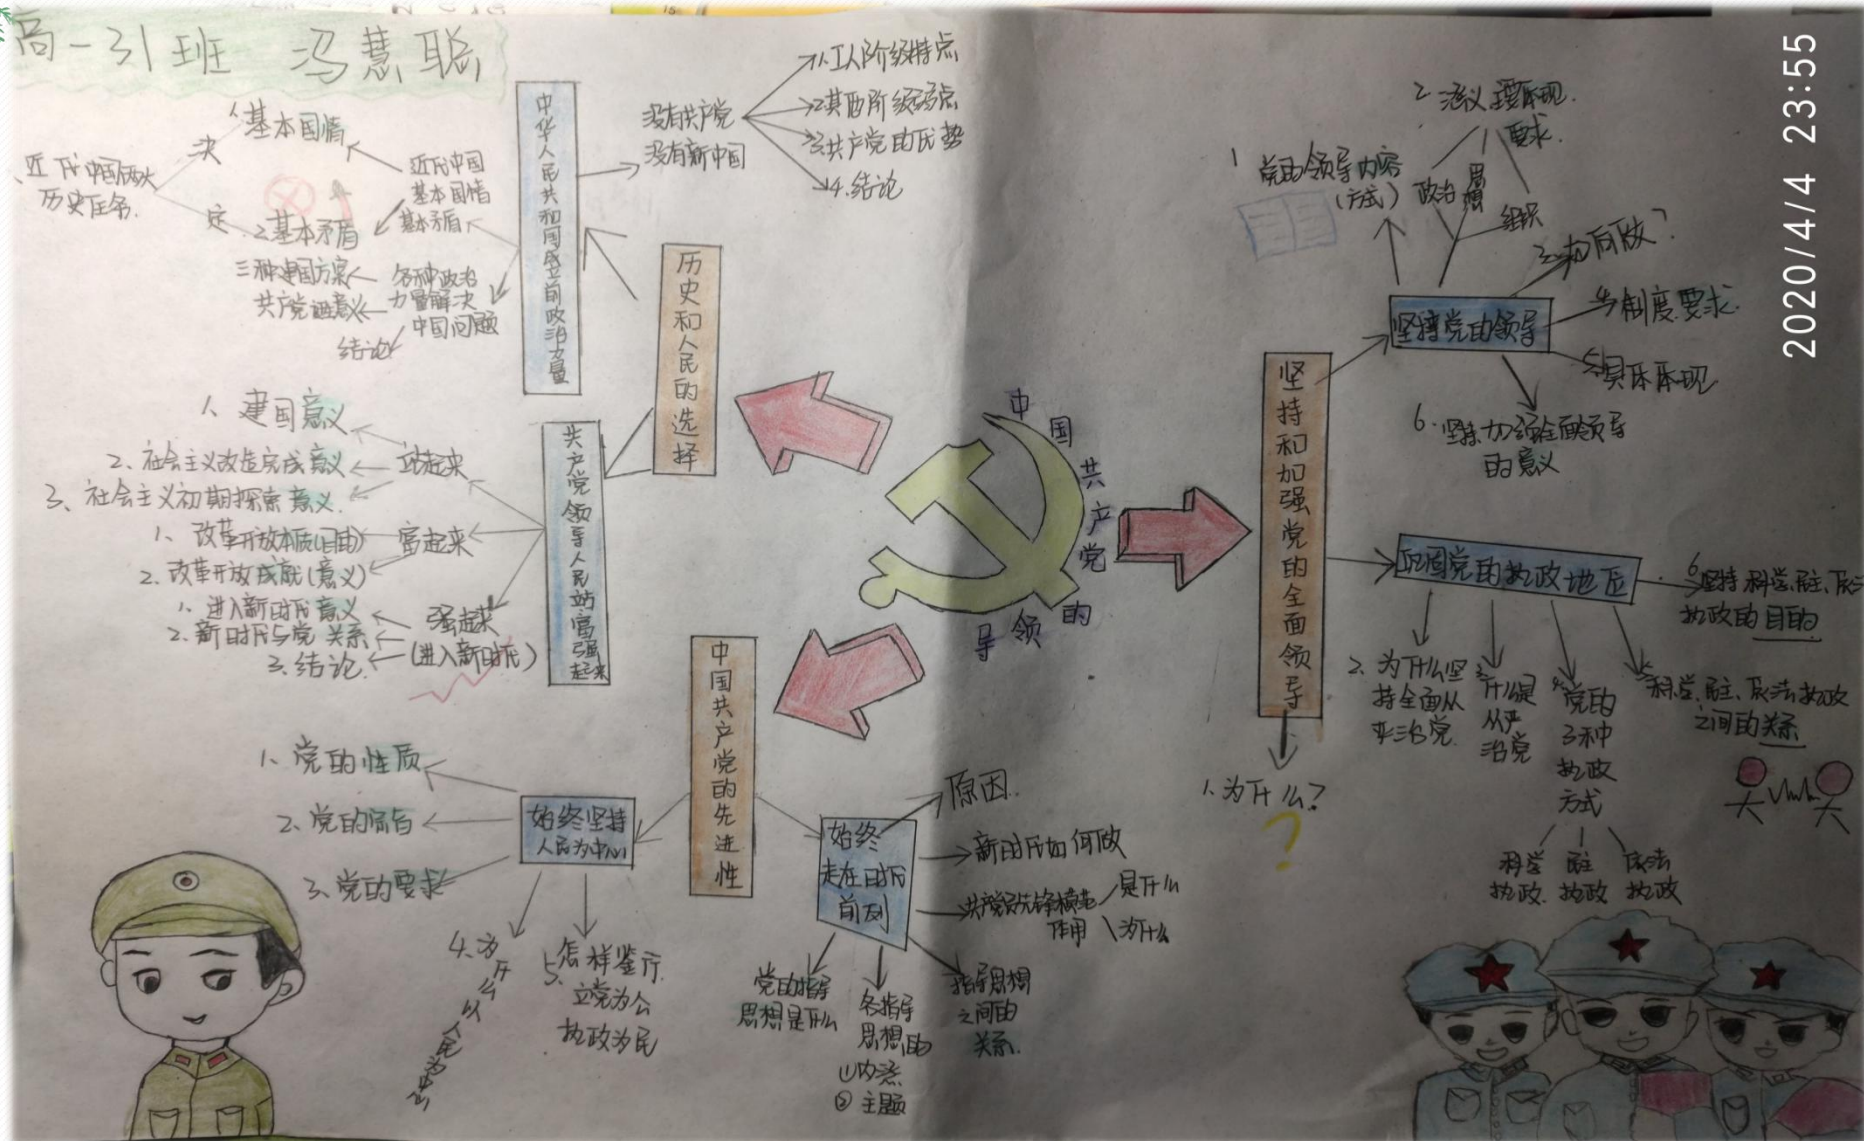 高一31班 冯慧聪
2020/4/4 23:55
中国共产党的领导
历史和人民的选择
中华人民共和国成立前政治力量
没有共产党
没有新中国
1.工人阶级特点
2其他阶级弱点
3共产党的优势
4.结论
近代中国
基本国情
基本矛盾
1基本国情
2基本矛盾
决
定
近代中国两大
历史任务.
各种政治
力量解决
中国问题
三种建国方案
共产党
结论
共产党领导人民站富强起来
站起来
1、建国意义
2、社会主义改造完成意义
3、社会主义初期探索意义.
富起来
1、改革开放本质(目的)
2、改革开放成就(意义)
强起来
(进入新时代)
1、进入新时代意义
2、新时代与党关系
3、结论.
中国共产党的先进性
始终坚持
人民为中心
1、党的性质
2、党的宗旨
3、党的要求
4、为什么以人民为中心
5、怎样鉴行
立党为公
执政为民
始终
走在时代
前列
原因.
新时代如何做
共产党员先锋模范
作用
是什么
为什么
党的指导
思想是什么
各指导
思想的
①内涵
②主题
指导思想
之间的
关系.
坚持和加强党的全面领导
1.为什么?
?
坚持党的领导
1 党的领导内容
(方式)
2 主要体现.
要求.
政治
思想
组织
3.如何做?
4制度要求.
5具体体现
6.坚持加强全面领导
的意义
巩固党的执政地位
2、为什么坚
持全面从
严治党.
3什么是
从严
治党
4党的
3种
执政
方式
科学
执政.
民主
执政
依法
执政
5科学、民主、依法执政
之间的关系
6坚持科学、民主、依法
执政的目的